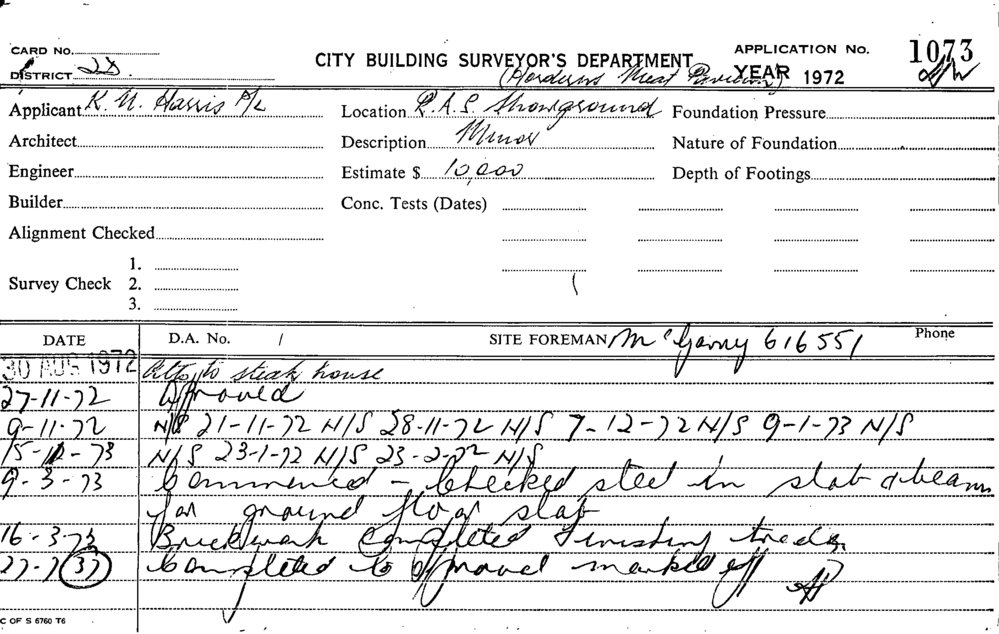 CARD No.
CITY BUILDING SURVEYOR'S DEPARTMENT
APPLICATION No. 1073
DISTRICT 2D
(Horderns Meat Pavilion)
YEAR 1972
Applicant K. N. Harris P/L
Location R.A.S. Showground
Foundation Pressure
Architect
Description Minor
Nature of Foundation
Engineer
Estimate $ 10,000
Depth of Footings
Builder
Conc. Tests (Dates)
Alignment Checked
1.
Survey Check 2.
3.
DATE
D.A. No. /
SITE FOREMAN Mc Garry 616551
Phone
30 AUG 1972 Alts to steak house
27-11-72 Approved
9-11-72 N/S 21-11-72 N/S 28-11-72 N/S 7-12-72 N/S 9-1-73 N/S
15-1-73 N/S 23-1-72 N/S 23-2-72 N/S
9-3-73 Commenced - Checked steel in slab & beams
for ground floor slab
16-3-73 Brickwork Completed Finishing trades
27-7 (37) Completed to approval marked off
C OF S 6760 T6